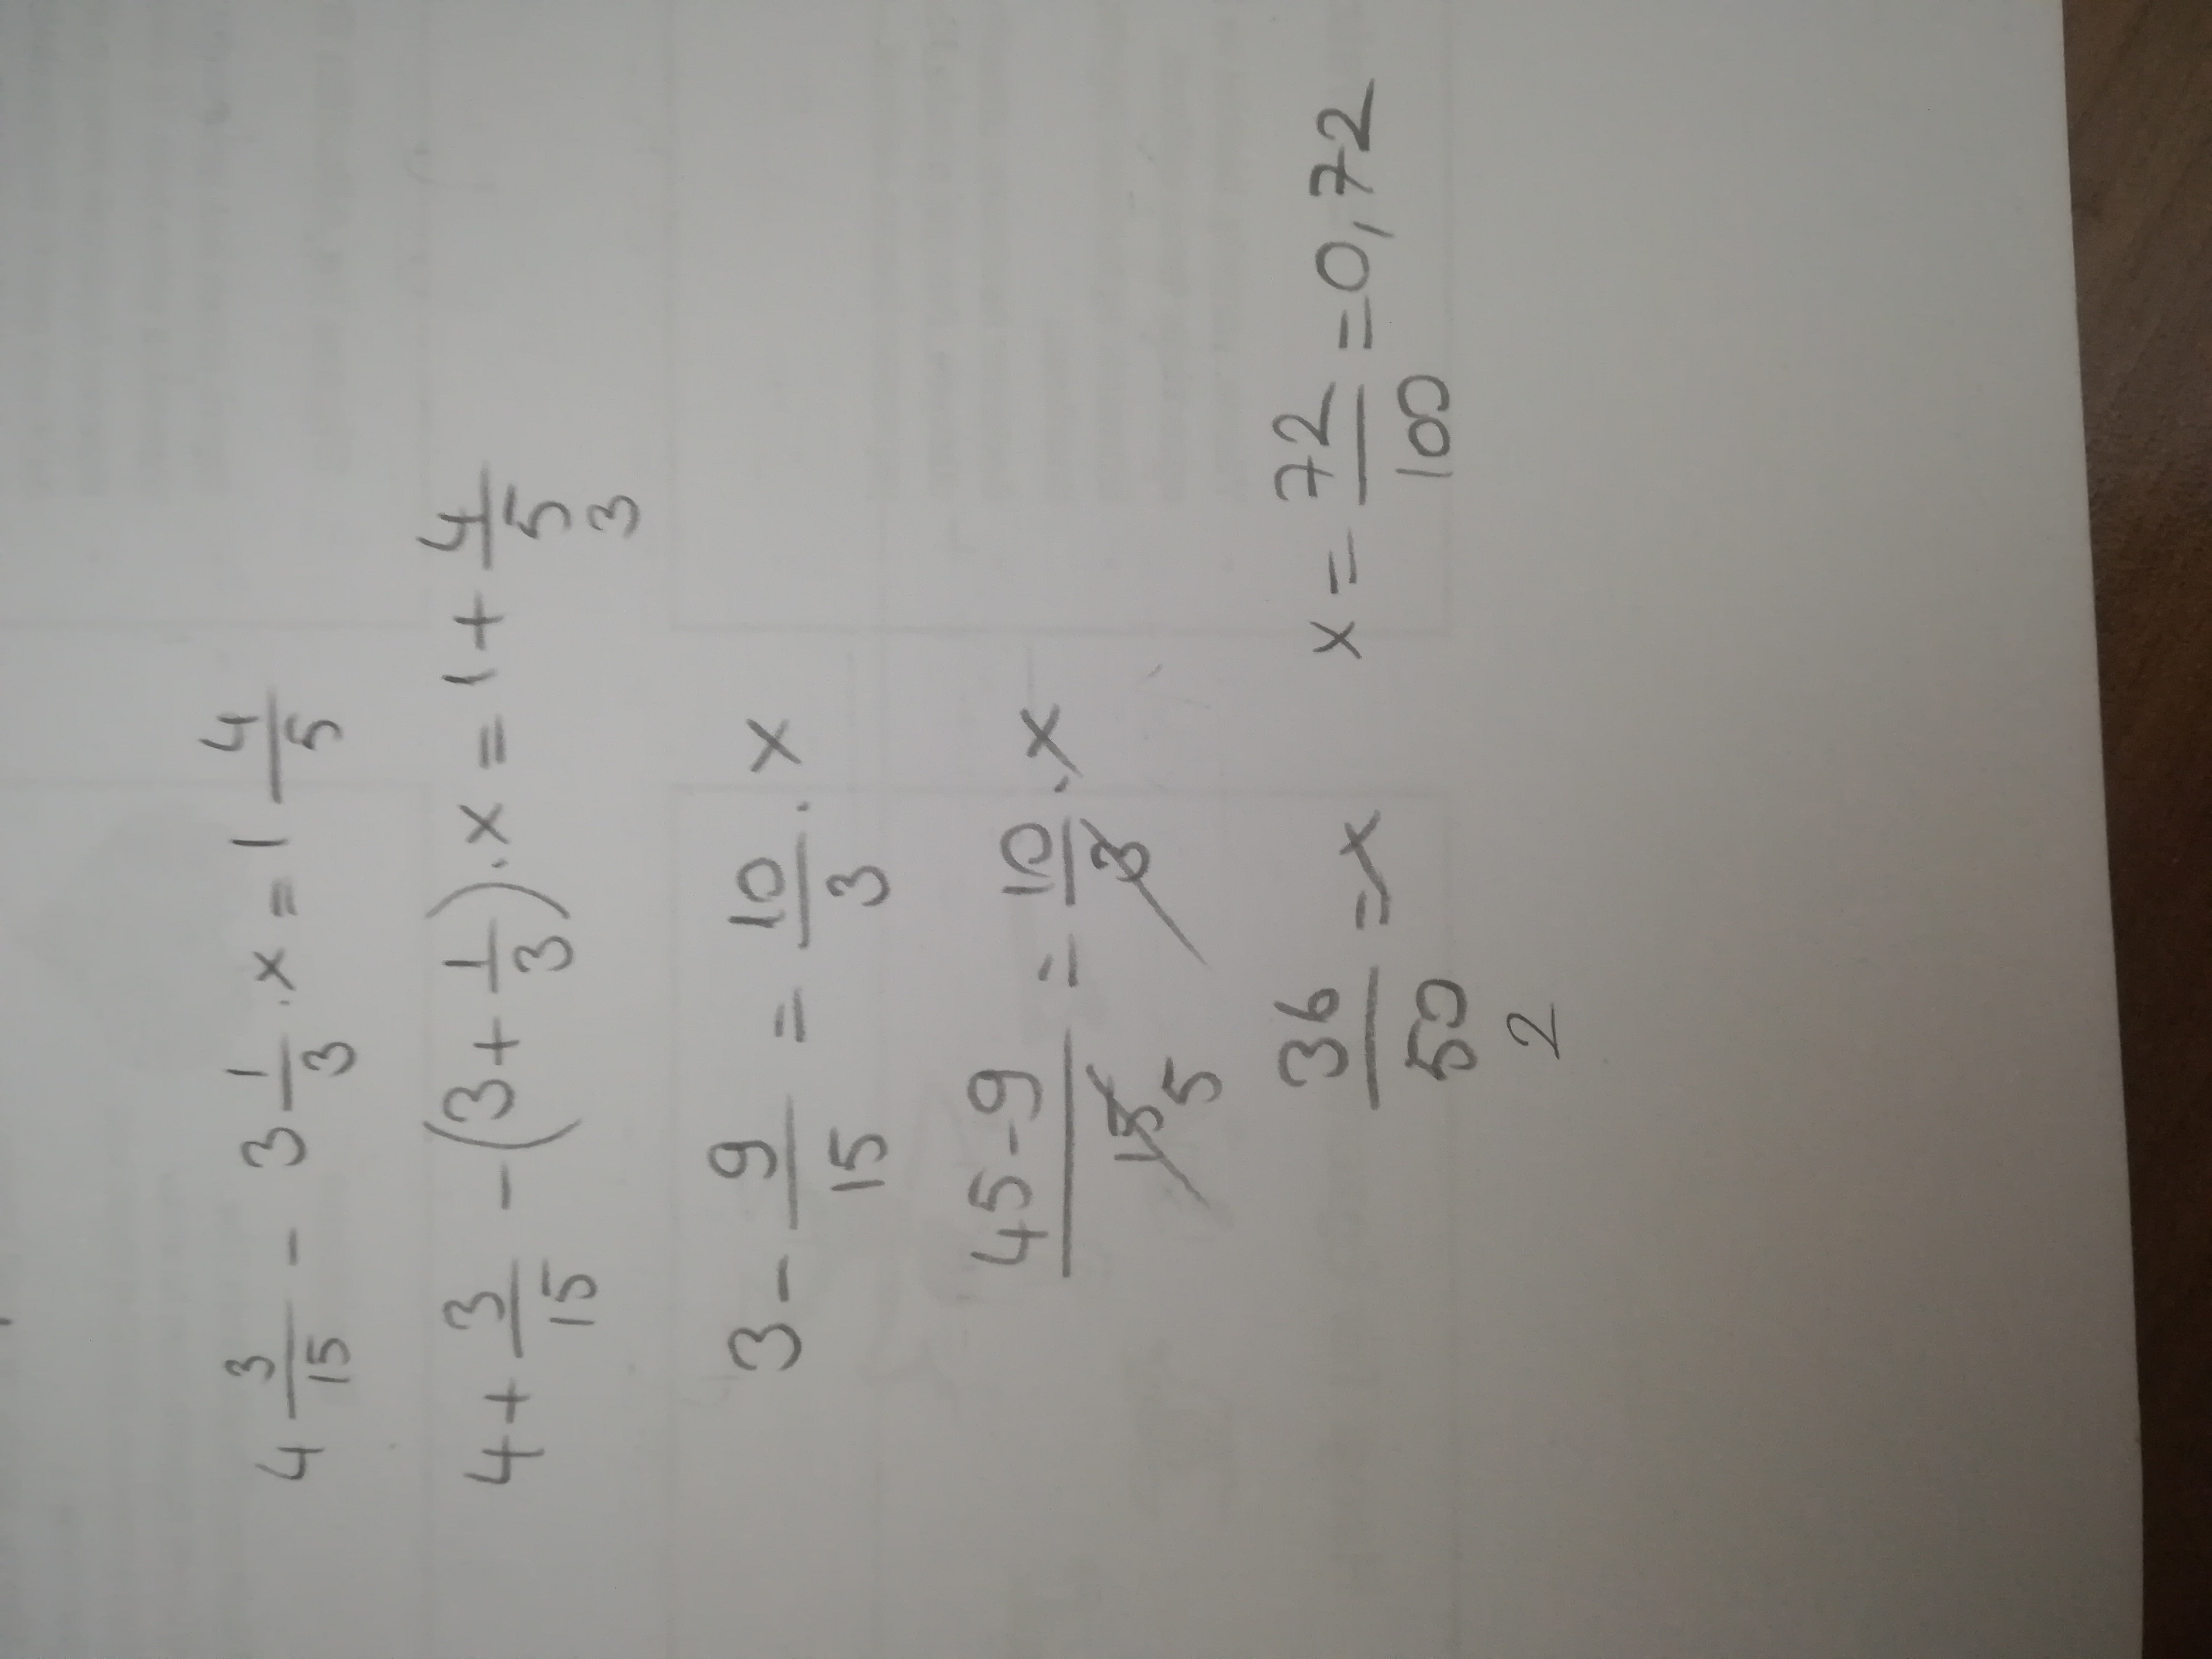 4 3/15 - 3 1/3 . x = 1 4/5
4 + 3/15 - (3 + 1/3) . x = 1 + 4/5 3
3 - 9/15 = 10/3 . x
45 - 9/15 5 = 10/3 . x
36/50 2 = x x = 72/100 = 0,72